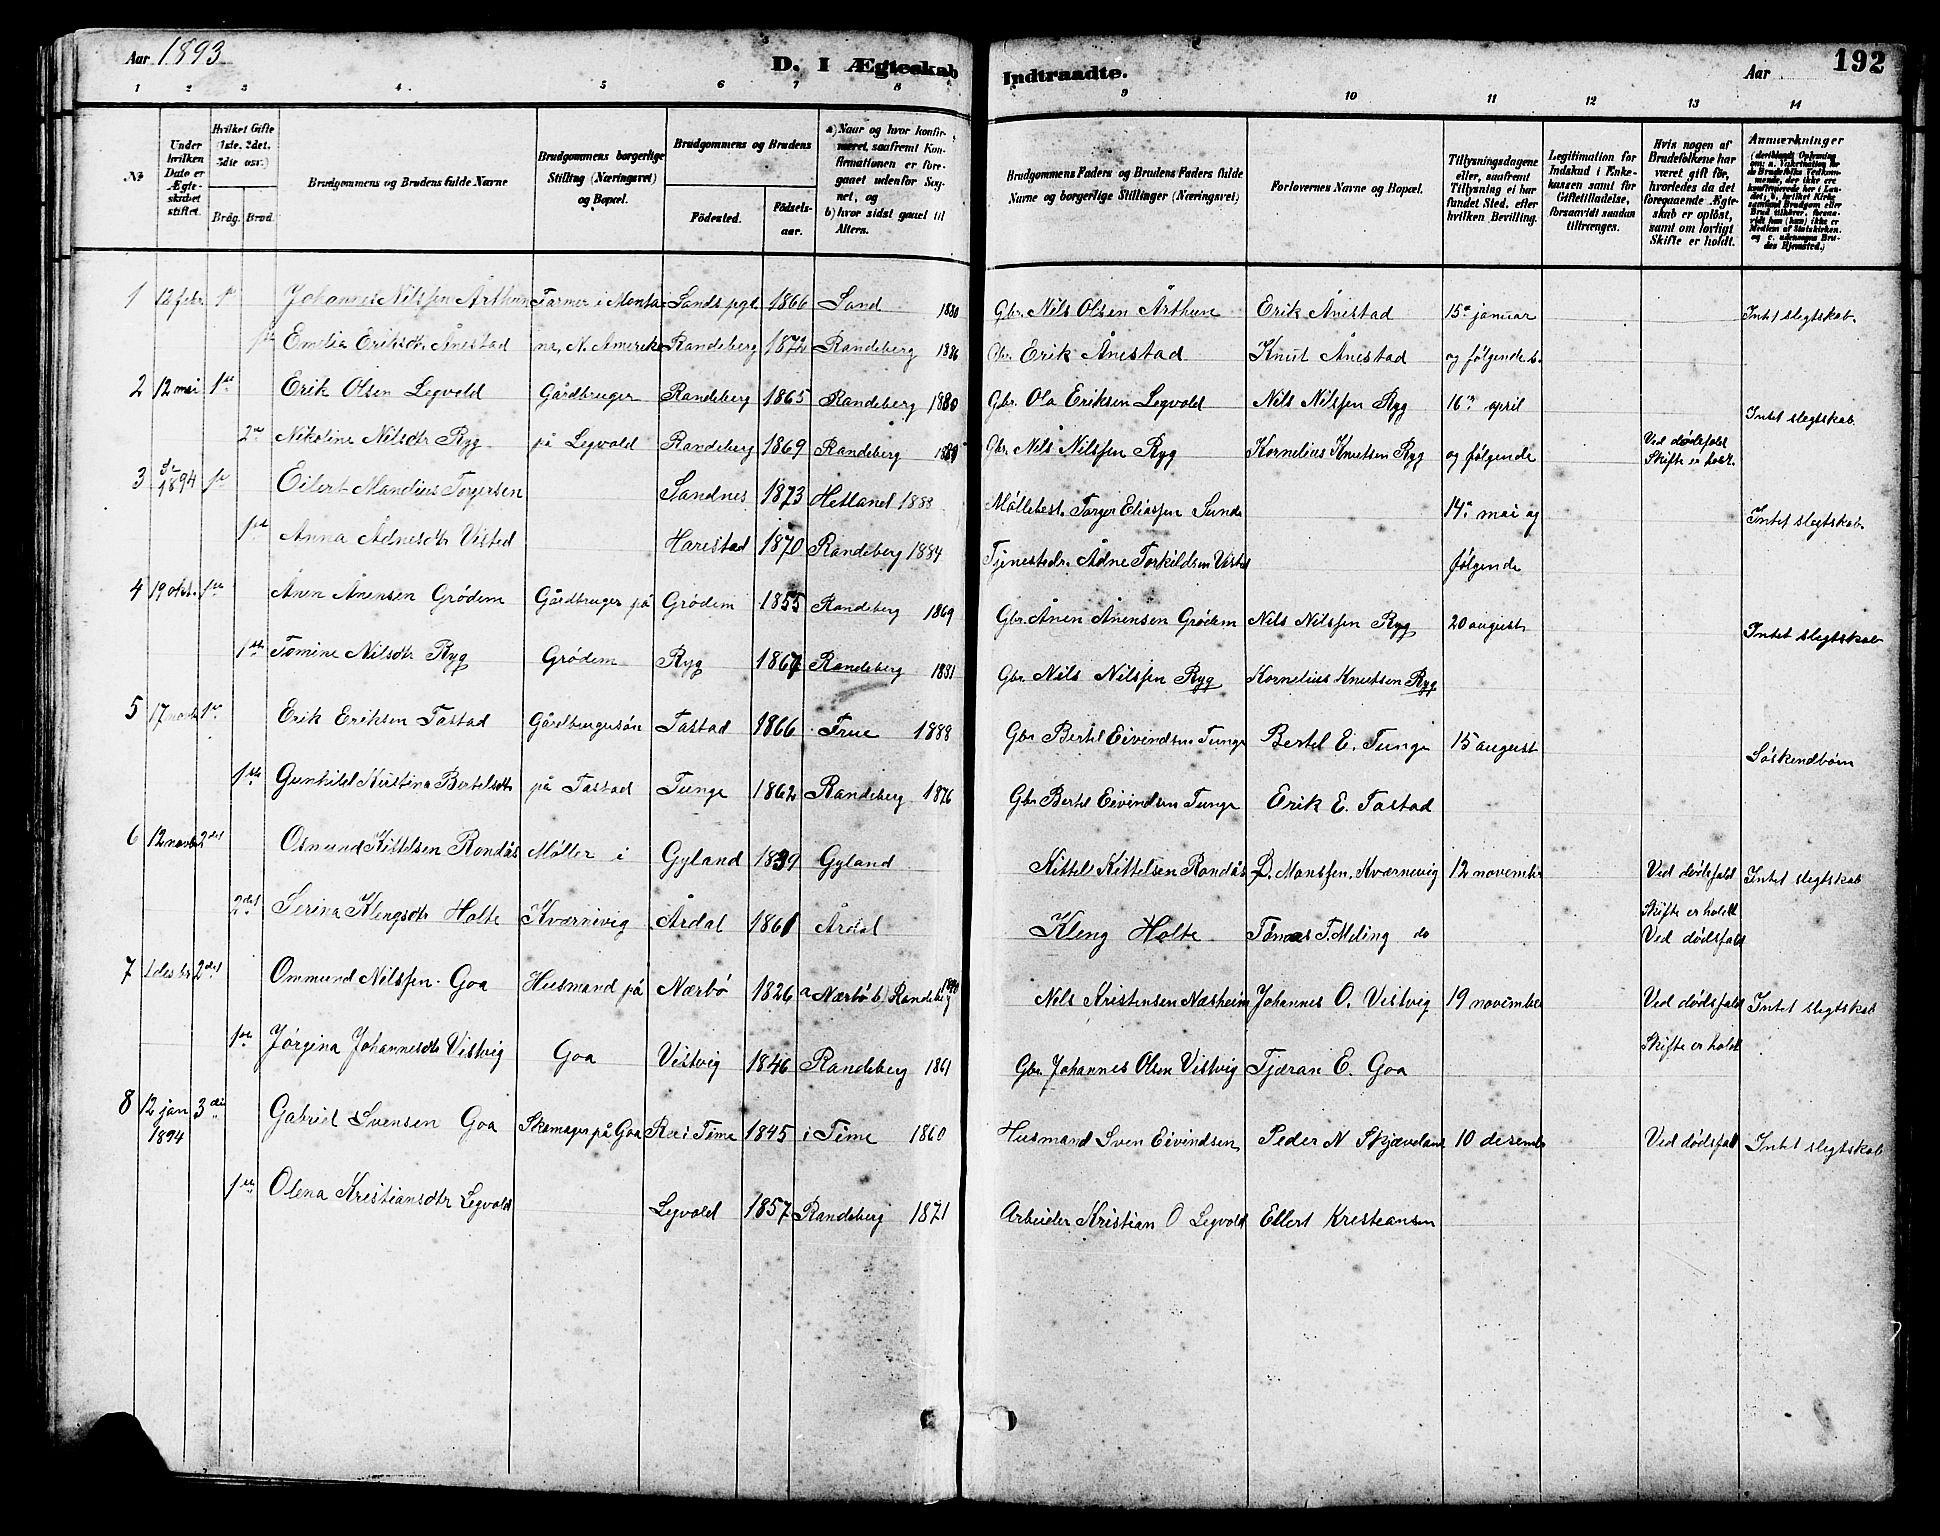 Aar 1893
D. I Ægteskab Indtraadte.
Aar
192
1 2 3 4 5 6 7 8 9 10 11 12 13 14
№
Under hvilken Dato er Ægteskabet stiftet.
Hvilket Gifte (1ste, 2det, 3die osv.)
Brdg. Brud.
Brudgommens og Brudens fulde Navne
Brudgommens borgerlige Stilling (Næringsvei) og Bopæl.
Brudgommens og Brudens
Födested. Födselsaar.
a) Naar og hvor konfirmeret, saafremt Konfirmationen er foregaaet udenfor Sognet, og
b) hvor sidst gaaet til Alters.
Brudgommens Faders og Brudens Faders fulde Navne og borgerlige Stillinger (Næringsvei)
Forlovernes Navne og Bopæl.
Tillysningsdagene eller, saafremt Tillysning ei har fundet Sted, efter hvilken Bevilling.
Legitimation for Indskud i Enkekassen samt for Giftetilladelse, forsaavidt saadan tiltrænges.
Hvis nogen af Brudefolkene har været gift för, hvorledes da det foregaaende Ægteskab er oplöst, samt om lovligt Skifte er holdt.
Anmærkninger
1 12 febr. 1ste Johannes Nilssen Årthun Farmer i Monta- Sands pgl. 1866 Sand 1880 Gbr. Nils Olsen Årthun Erik Ånestad 15de januar Intet slegtskab.
1ste Emilia Eriksdtr Ånestad na, N. Amerika Randeberg 1872 Randeberg 1886 Gbr. Erik Ånestad Knut Ånestad og følgende s.
2 12 mai 1ste Erik Olsen Legvold Gårdbruger Randeberg 1865 Randeberg 1880 Gbr. Ola Eriksen Legvold Nils Nilssen Ryg 16de april Intet slegtskab
2det Nikoline Nilsdtr Ryg på Legvold Randeberg 1869 Randeberg Gbr. Nils Nilssen Ryg Kornelius Knutsen Ryg og følgende Ved dødsfald Skifte er
3 1894 1ste Eilert Mandius Torgersen Sandnes 1873 Hetland 1888 Møllebest. Torger Eliassen Sunde 14de mai og Intet slegtskab
1ste Anna Ådnesdtr Visted Harestad 1870 Randeberg 1884 Tjenestedr. Ådne Torkildsen Visted følgende
4 19 okt. 1ste Ånen Ånensen Grødem Gårdbruger på Grødem 1855 Randeberg 1869 Gbr. Ånen Ånensen Grødem Nils Nilssen Ryg 20 august Intet slegtskab
1ste Tomine Nilsdtr Ryg Grødem Ryg 1867 Randeberg 1881 Gbr. Nils Nilssen Ryg Kornelius Knutsen Ryg
5 17 novb 1ste Erik Eriksen Tastad Gårdbrugersøn Tastad 1866 True 1888 Gbr Bertel Eivindsen Tunge Bertel E. Tunge 15 august Søskendbørn
1ste Gunhild Kristina Bertelsdtr på Tastad Tunge 1862 Randeberg 1876 Gbr Bertel Eivindsen Tunge Erik E. Tastad
6 12 novb 2det Osmund Kittelsen Rondås Møller i Gyland 1839 Gyland Kittel Kittelsen Rondås D. Monssen, Kværnevig 12 november Ved dødsfald Intet slegtskab
2det Serina Klengsdtr Holte Kværnevig Årdal 1861 Årdal Kleng Holte Tønnes T. Meling do Skifte er holdt Ved dødsfald
7 1 desbr 2det Ommund Nilssen Goa Husmand på Nærbø 1826 a Nærbø b) Randeberg Nils Kristensen Næsheim Johannes O. Vistvig 19 november Ved dødsfald Intet slegtskab
1ste Jørgina Johannesdtr Vistvig Goa Vistvig 1846 Randeberg 1861 Gbr. Johannes Olsen Vistvig Tjæran E. Goa Skifte er holdt
8 12 jan 1894 3die Gabriel Svensen Goa Skomager på Goa Re i Time 1845 i Time 1860 Husmand Sven Eivindsen Peder N Skjæveland 10 desemb Ved dødsfald Intet slegtskab
1ste Olena Kristiansdtr Legvold Legvold 1857 Randeberg 1871 Arbeider Kristian O Legvold Ellert Kristiansen